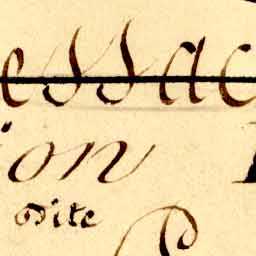 essac
ion
dite